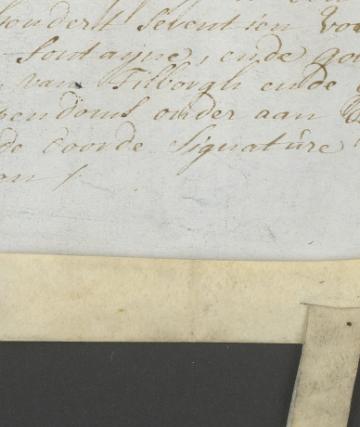 hondert seventien voor
fontayne, ende go
van Tilborgh ende
pendons onder aan
de coorde signature
on /